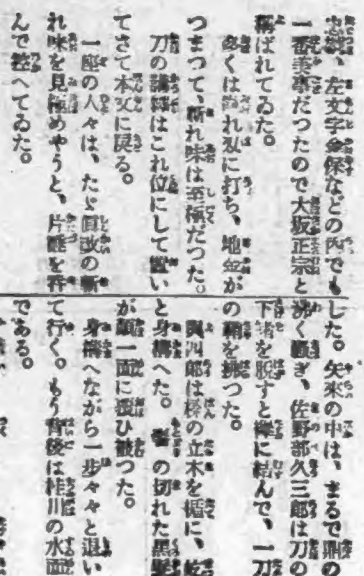 忠綱、左文字金保などの內でも
一番秀拳だつたので大坂正宗と
稱ばれてゐた。
多くは濶れ刄に打ち、地金が
つまつて、斬れ味は至極だつた。
刀の講釋はこれ位にして置い
てさて本文に戻る。
一座の人々は、たゞ直改の斬
れ味を見極めやうと、片唾を呑
んで控へてゐた。
した。矢來の中は、まるで鼎の
沸く騷ぎ、佐野部久三郎は刀の
下緖を脫すと襷に結んで、一刀
の鞘を拂つた。
四郎は榛の立木を楯に、
と身構へた。髻の切れた黑髮
が顏一面に覆ひ被つた。
身構へながら一步々々と退い
て行く。もう背後は桂川の水面
である。